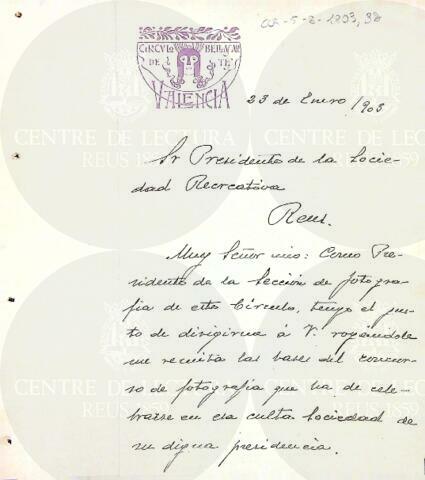 CIRCULO BELLAS AR
DE TE
VALENCIA
23 de Enero /903
Sr Presidente de la Socie-
dad Recreativa
Reus.
Muy Señor mio: Como Pre-
sidente de la Sección de fotogra-
fia de este Círculo, tengo el gus-
to de dirigirme á V. rogándole
me remita las bases del concur-
so de fotografia que ha de cele-
brarse en esa culta Sociedad de
su digna presidencia.
CENTRE DE LECTURA
REUS 1859
CENTRE DE LECTURA
REUS 1859
CENTRE DE LECTURA
REUS 1859
CENTRE DE LECTURA
REUS 1859